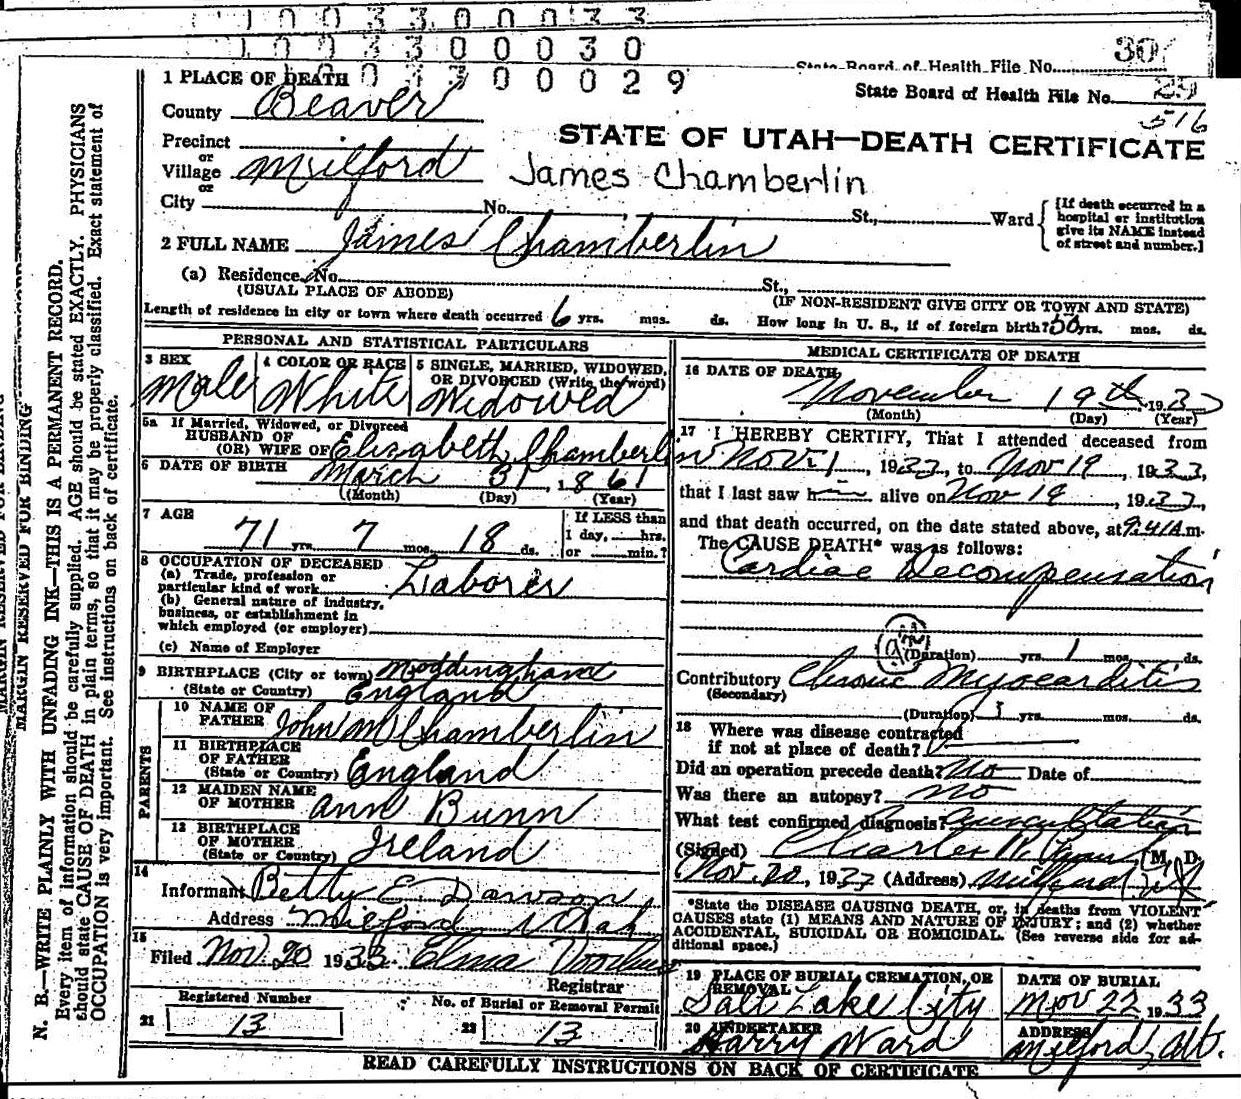 1 0 0 3 3 0 0 0 3 3
1 0 0 3 3 0 0 0 3 0
0 0 3 0 0 0 2 9
State Board of Health File No. 30
State Board of Health File No. 29
516
STATE OF UTAH—DEATH CERTIFICATE
James Chamberlin
1 PLACE OF DEATH
County Beaver
Precinct
or
Village Milford
or
City No. St., Ward
[If death occurred in a
hospital or institution
give its NAME instead
of street and number.]
2 FULL NAME James Chamberlin
(a) Residence. No. St.,
(USUAL PLACE OF ABODE) (IF NON-RESIDENT GIVE CITY OR TOWN AND STATE)
Length of residence in city or town where death occurred 6 yrs. mos. ds. How long in U. S., if of foreign birth? 50 yrs. mos. ds.
PERSONAL AND STATISTICAL PARTICULARS
3 SEX Male
4 COLOR OR RACE White
5 SINGLE, MARRIED, WIDOWED,
OR DIVORCED (Write the word)
Widowed
5a If Married, Widowed, or Divorced
HUSBAND OF
(OR) WIFE OF Elizabeth Chamberlin
6 DATE OF BIRTH March 31, 1861
(Month) (Day) (Year)
7 AGE
71 yrs. 7 mos. 18 ds.
If LESS than
1 day, hrs.
or min.?
8 OCCUPATION OF DECEASED
(a) Trade, profession or
particular kind of work Laborer
(b) General nature of industry,
business, or establishment in
which employed (or employer)
(c) Name of Employer
9 BIRTHPLACE (City or town)
(State or Country) England
PARENTS
10 NAME OF
FATHER John M Chamberlin
11 BIRTHPLACE
OF FATHER
(State or Country) England
12 MAIDEN NAME
OF MOTHER Ann Bunn
13 BIRTHPLACE
OF MOTHER
(State or Country) Ireland
14
Informant Betty E Dawson
Address Milford Utah
15
Filed Nov. 20 1933. Elma
Registrar
Registered Number
21 13
No. of Burial or Removal Permit
22 13
MEDICAL CERTIFICATE OF DEATH
16 DATE OF DEATH
November 19th, 193
(Month) (Day) (Year)
17 I HEREBY CERTIFY, That I attended deceased from
Nov. 1, 1933, to Nov 19, 1933,
that I last saw him alive on Nov 19, 1933,
and that death occurred, on the date stated above, at 9:41A.m.
The CAUSE DEATH* was as follows:
Cardiac Decompensation
(Duration) yrs. 1 mos. ds.
Contributory Chronic Myocarditis
(Secondary)
(Duration) 1 yrs. mos. ds.
18 Where was disease contracted
if not at place of death?
Did an operation precede death? No Date of
Was there an autopsy? no
What test confirmed diagnosis? Auscultation
(Signed) Charles M. D.
Nov. 20, 1933 (Address) Milford Ut
*State the DISEASE CAUSING DEATH, or, in deaths from VIOLENT
CAUSES state (1) MEANS AND NATURE OF INJURY; and (2) whether
ACCIDENTAL, SUICIDAL OR HOMICIDAL. (See reverse side for ad-
ditional space.)
19 PLACE OF BURIAL, CREMATION, OR
REMOVAL
Salt Lake City
DATE OF BURIAL
Nov 22 1933
20 UNDERTAKER
Harry Ward
ADDRESS
Milford, Ut.
READ CAREFULLY INSTRUCTIONS ON BACK OF CERTIFICATE
MARGIN RESERVED FOR BINDING
N. B.—WRITE PLAINLY WITH UNFADING INK—THIS IS A PERMANENT RECORD.
Every item of information should be carefully supplied. AGE should be stated EXACTLY. PHYSICIANS
should state CAUSE OF DEATH in plain terms, so that it may be properly classified. Exact statement of
OCCUPATION is very important. See instructions on back of certificate.